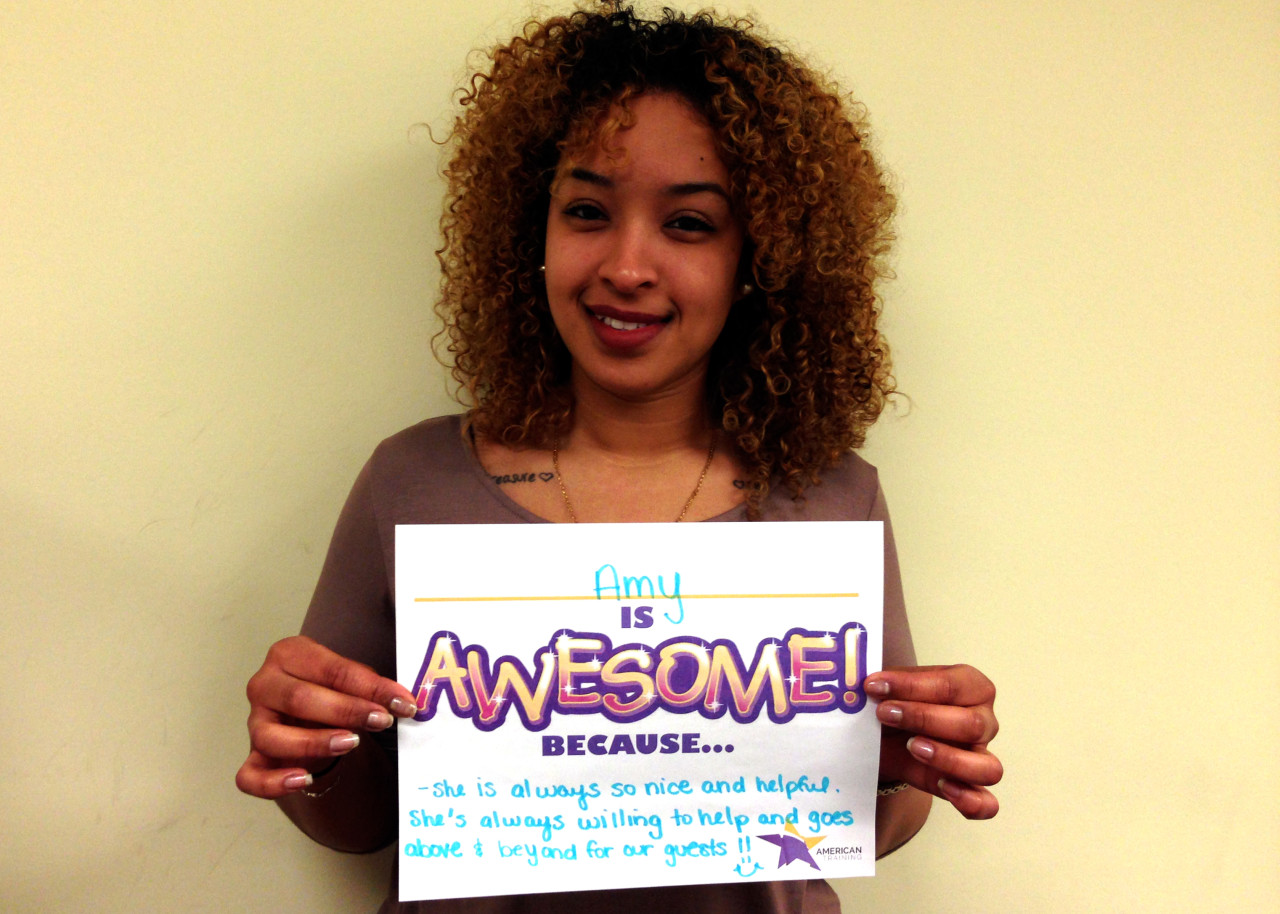 Amy
IS
AWESOME!
BECAUSE...
-She is always so nice and helpful.
She's always willing to help and goes
above & beyond for our guests !!
AMERICAN
TRAINING